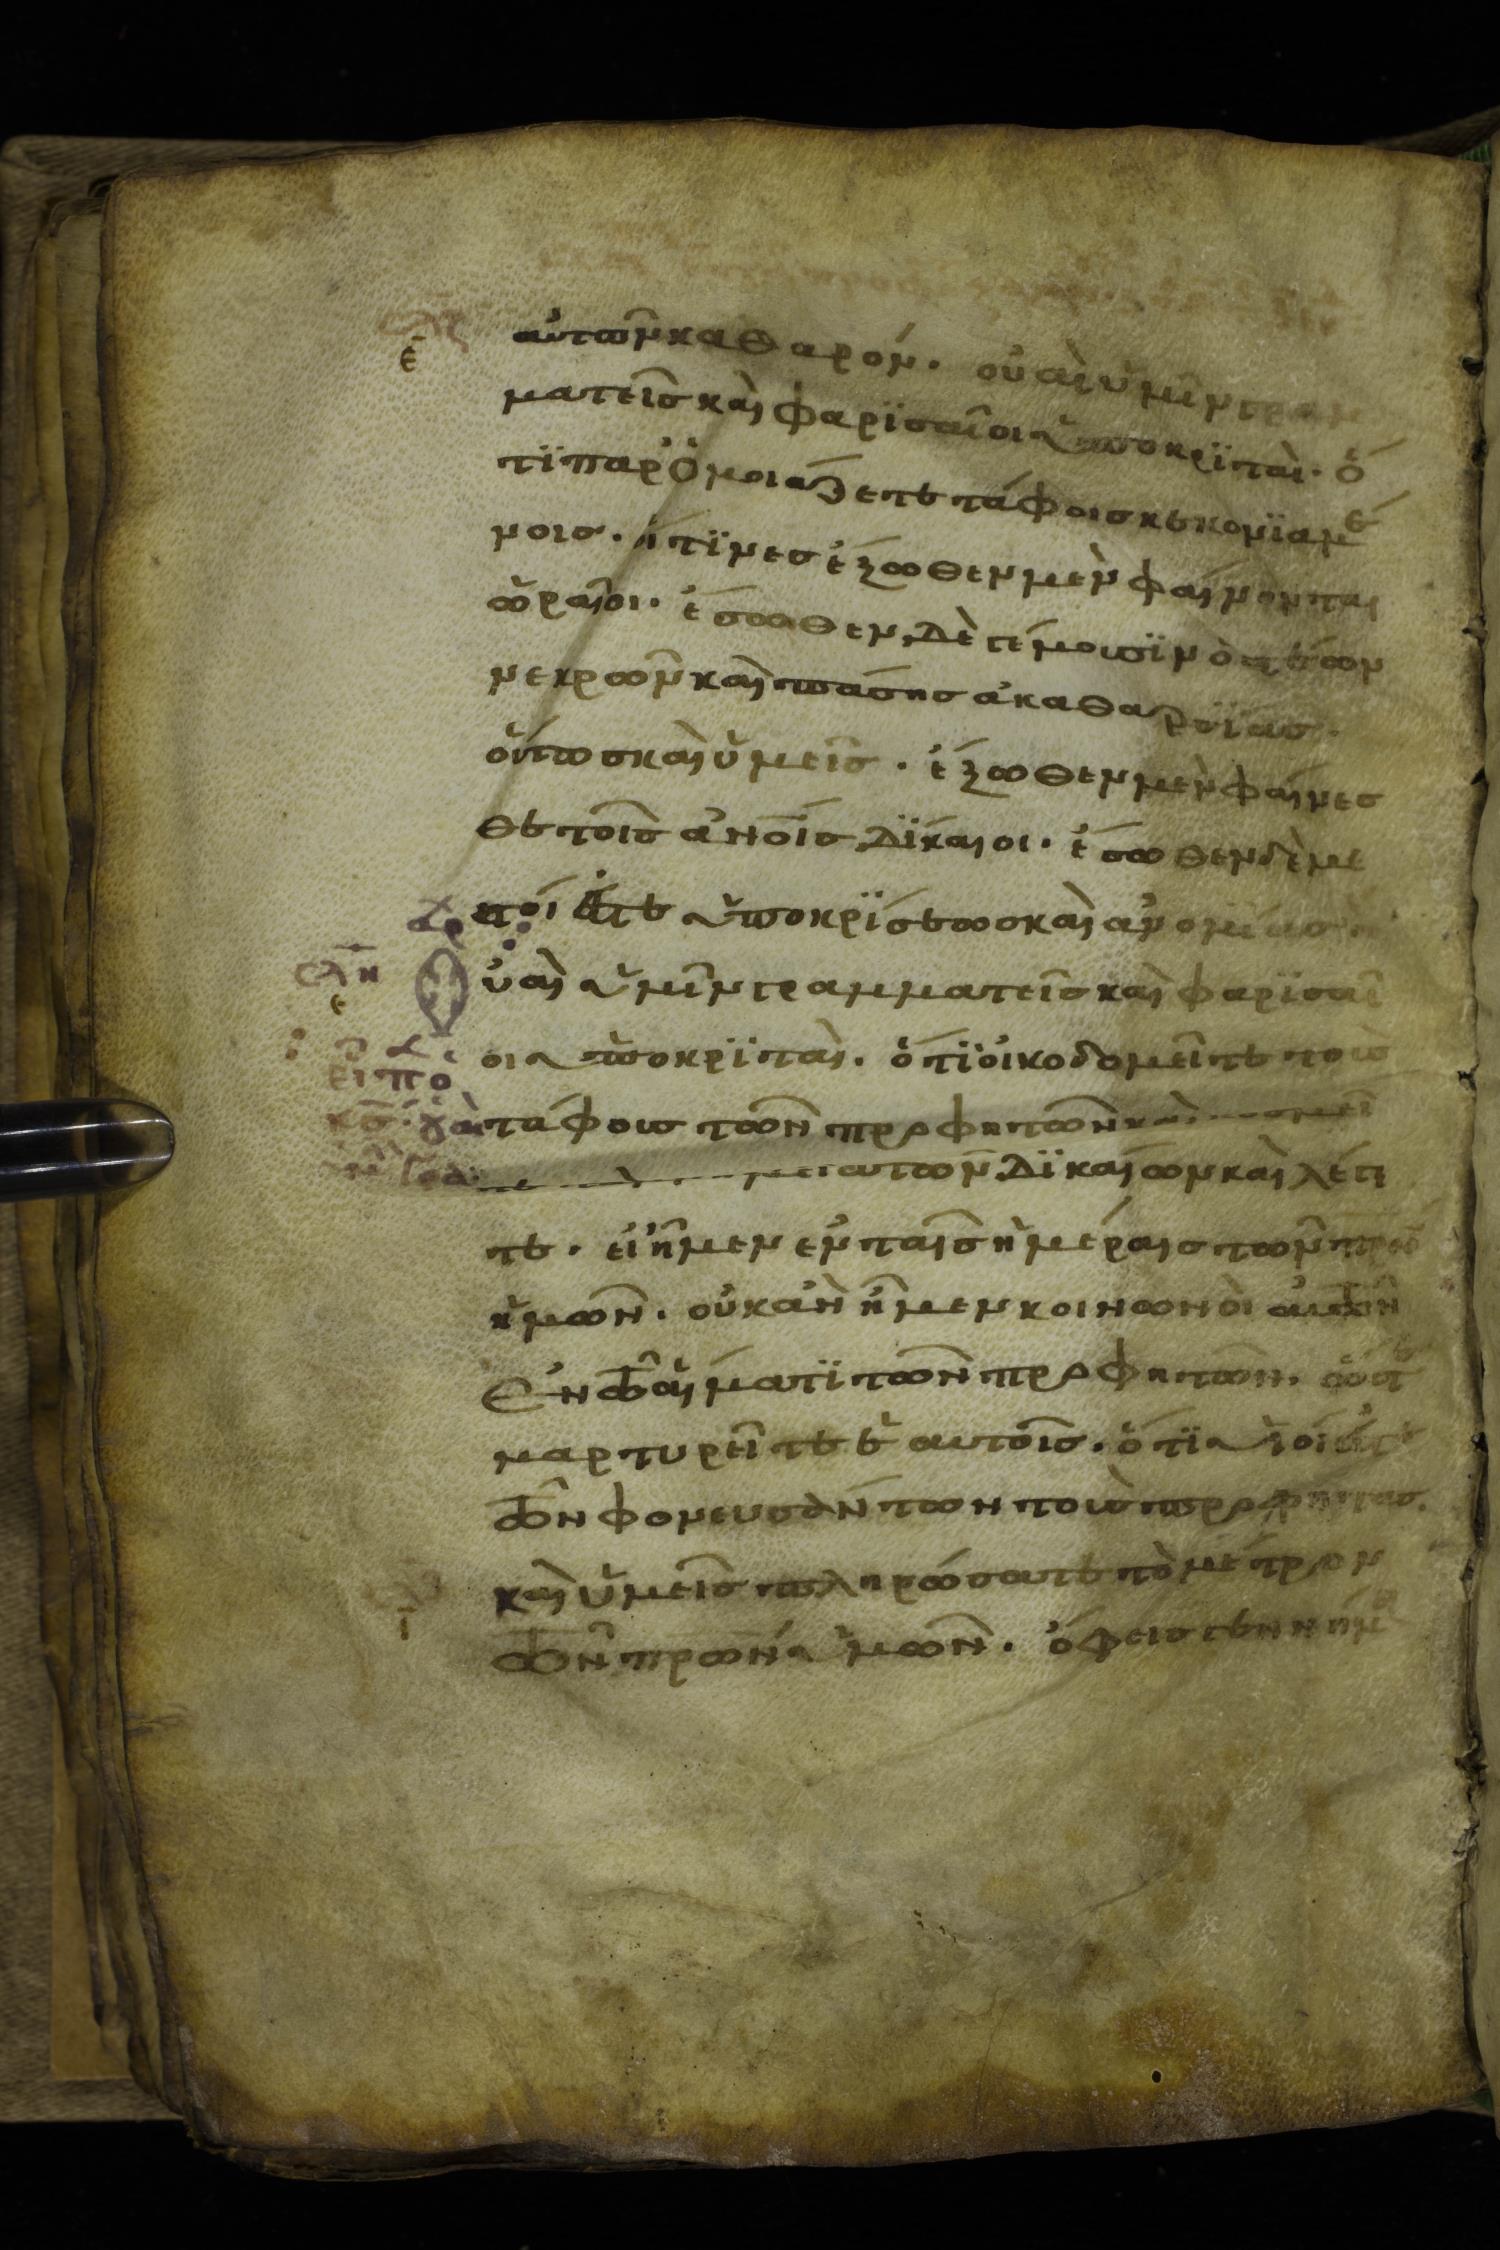 αὐτῶν καθαρόν. οὐαὶ ὑμῖν γραμ
ματεῖς καὶ φαρϊσαῖοι ὑποκρϊταὶ. ὅ
τϊ παρὁμοιάζετε τάφοις κεκονϊαμέ
νοις. οἵτϊνες ἔξωθεν μὲν φαίνονται
ὡραῖοι. ἔσωθεν δὲ γέμουσϊν ὀστέων
νεκρῶν καὶ πάσης ἀκαθαρσϊας.
οὕτως καὶ ὑμεῖς. ἔξωθεν μὲν φαίνεσ
θε τοῖς ἀνοῖς δϊκαιοι. ἔσωθεν δὲ με
στοί ἐστε ὑποκρΐσεως καὶ ἀνομίας
Οὐαὶ ὑμῖν γραμματεῖς καὶ φαρϊσαῖ
οι ὑποκρϊταὶ. ὅτϊ οἰκοδομεῖτε τοὺς
τάφους τῶν προφητῶν καὶ
αὐτῶν δϊκαίων καὶ λέγε
τε. εἰ ἦμεν ἐν ταῖς ἡμέραις τῶν πρων
ἡμῶν. οὐκ ἂν ἦμεν κοινωνοὶ αὐτῶν
ἐν τῶ αἵματϊ τῶν προφητῶν. ὥστε
μαρτυρεῖτε ἑαυτοῖς. ὅτϊ υἱοί ἐστε
τῶν φονευσάντων τοὺς προφήτας.
καὶ ὑμεῖς πληρώσατε τὸ μέτρον
τῶν πρων ὑμῶν. ὄφεις γεννήμα